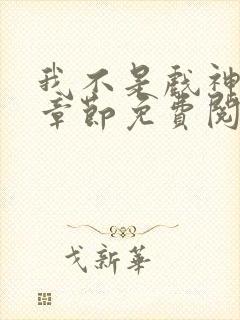 我不是戏神
章节免费阅
戈新华